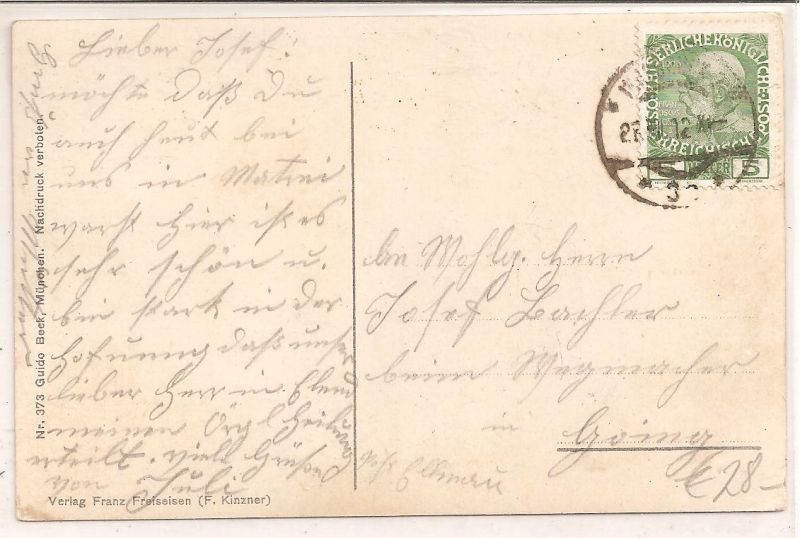 Lieber Josef!
möchte daß Du
auch heut bei
uns in Matrei
warst hier ist es
sehr schön u.
bin stark in der
Hofnung daß unser
lieber Herr in Elend
meinen Örgl Heilung
erteilt. viele Grüße
von Juli
Nr. 373 Guido Beck, München. Nachdruck verboten.
Verlag Franz Freiseisen (F. Kinzner)
KAISERLICHE KÖNIGLICHE ÖSTERREICHISCHE
5 5
12
An Wohlg. Herrn
Josef Bachler
beim Wegmacher
in
Going
Post Ellmau
€ 28-